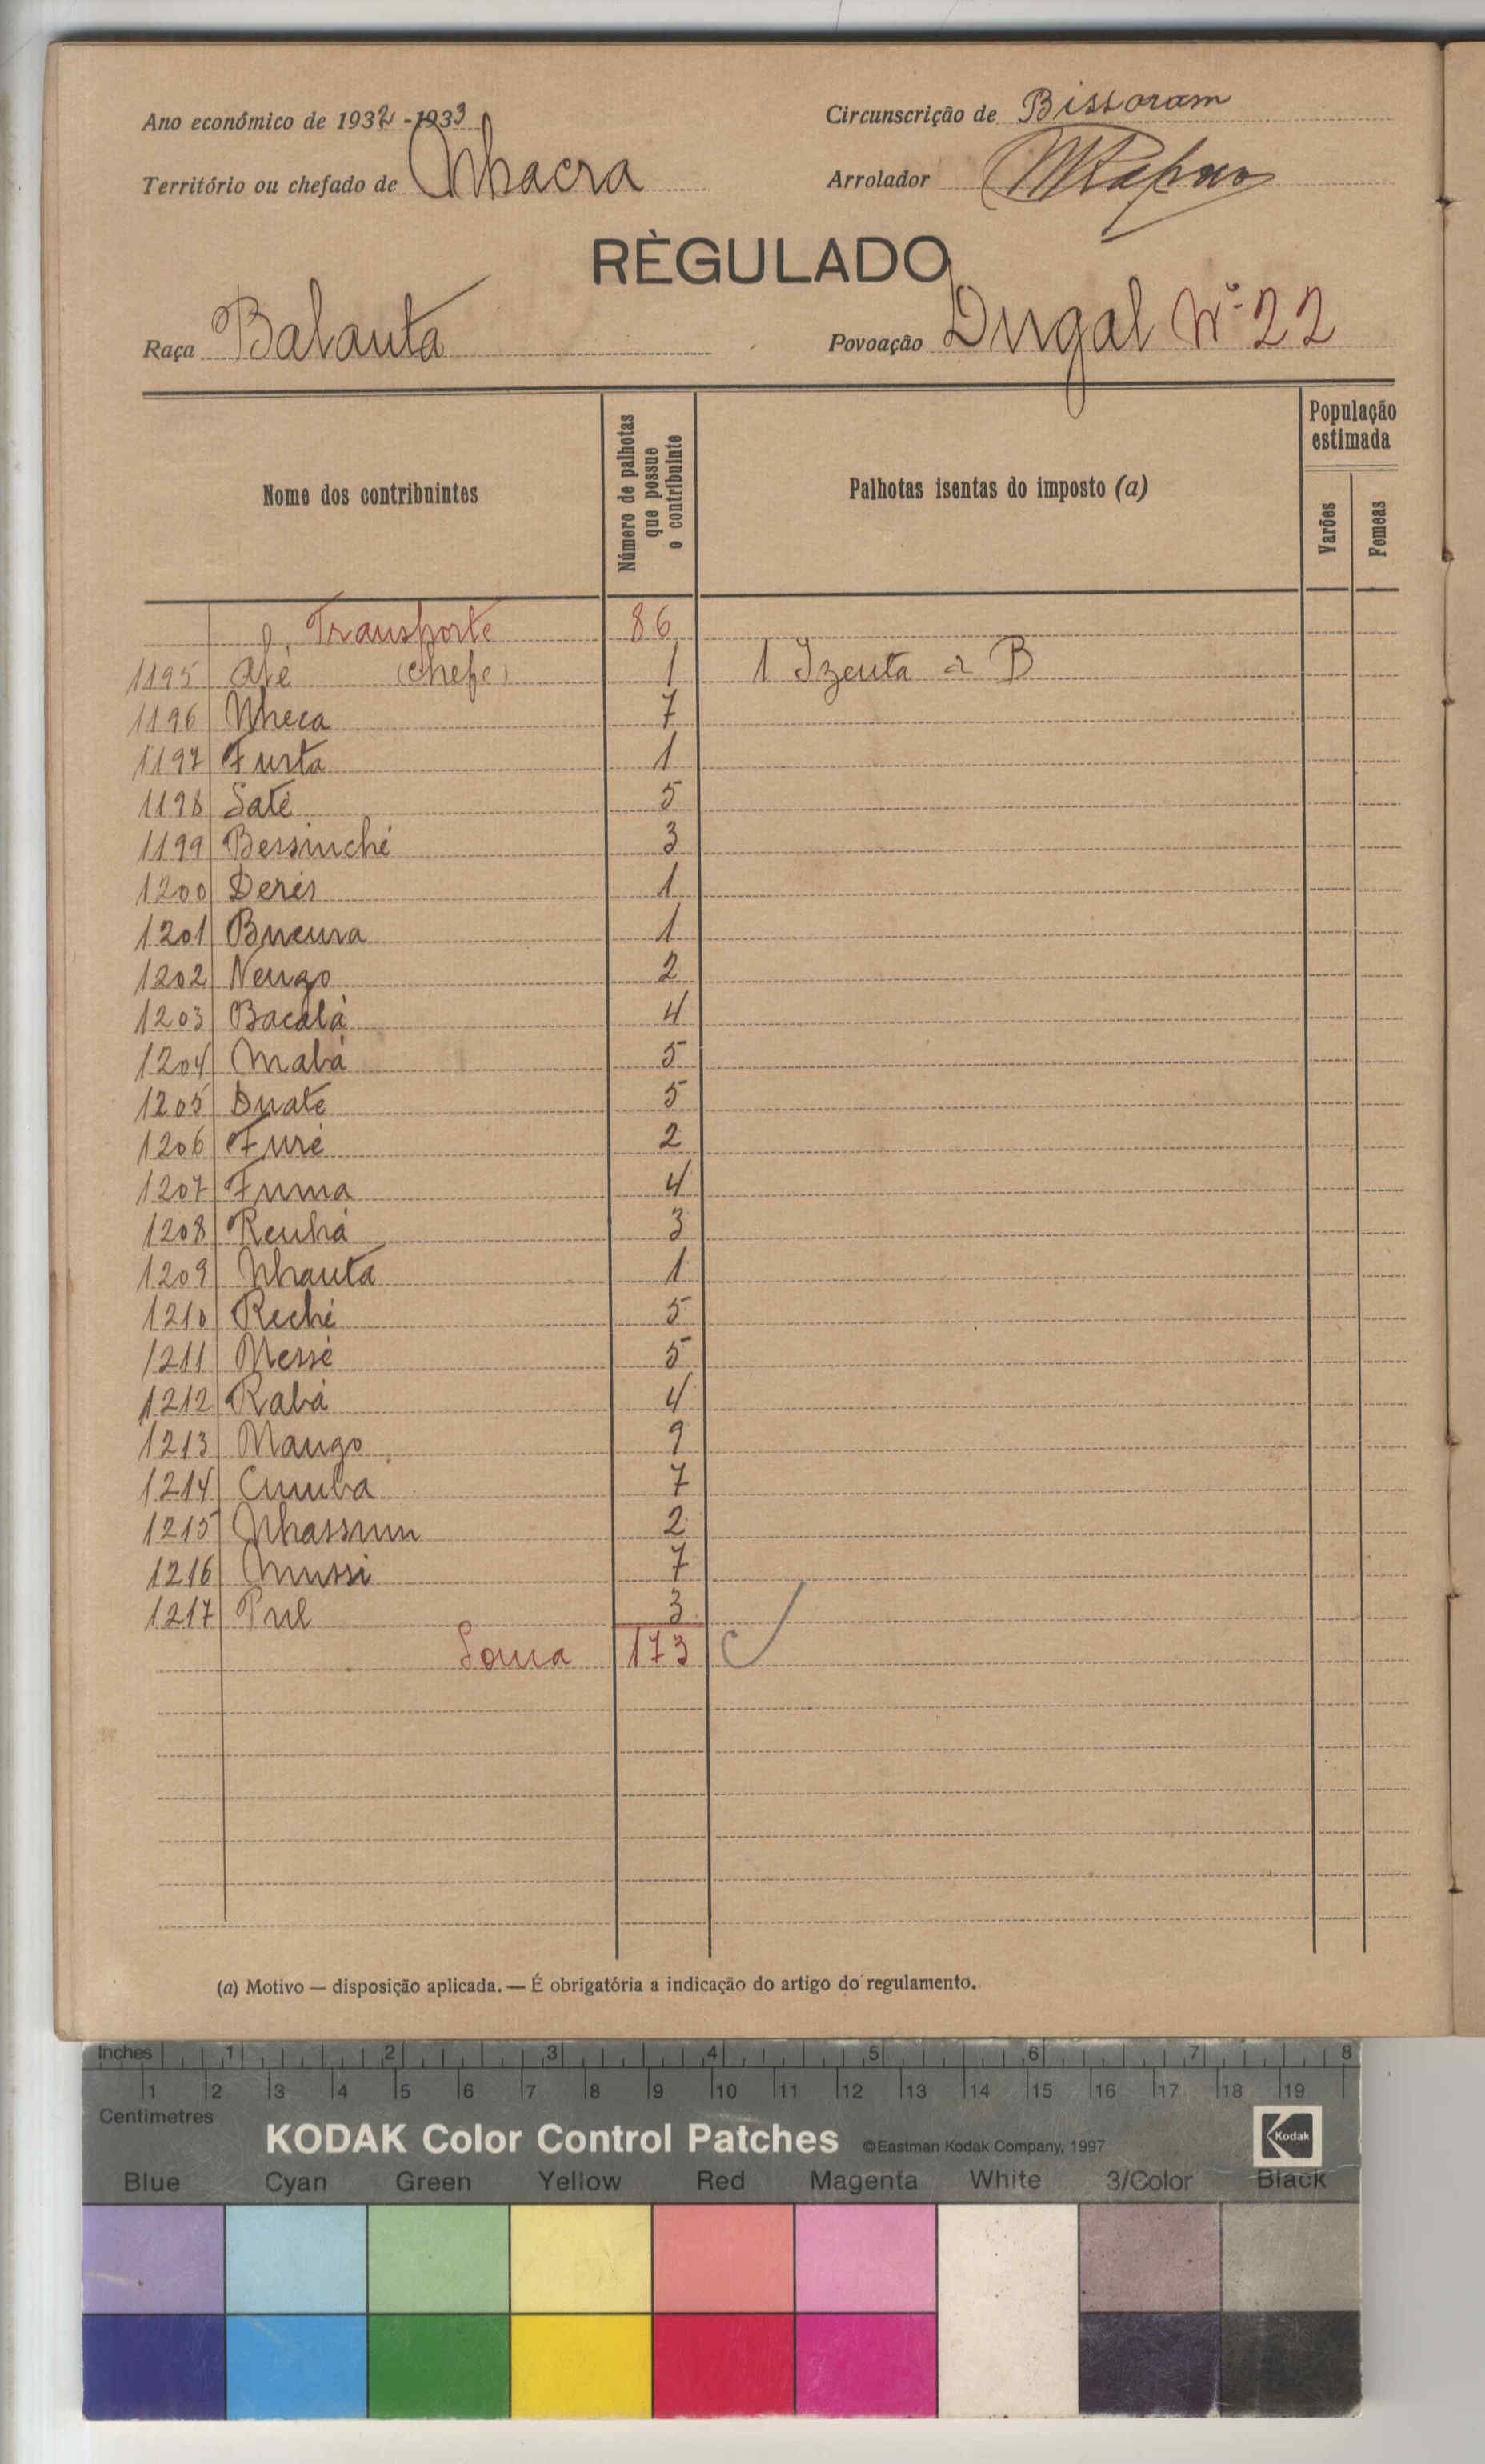 Ano económico de 1932-1933
Circunscrição de Bissoram
Território ou chefado de Nhacra
Arrolador
RÈGULADO
Raça Balanta
Povoação Dugal Nº 22
Nome dos contribuintes
Número de palhotas que possue o contribuinte
Palhotas isentas do imposto (a)
População estimada
Varões
Femeas
Transporte 86
1195 Afé (chefe) 1 1 Izenta a B
1196 Nheca 7
1197 Furta 1
1198 Saté 5
1199 Bessinché 3
1200 Derés 1
1201 Bucura 1
1202 Nengo 2
1203 Bacalá 4
1204 Mabá 5
1205 Duate 5
1206 Furé 2
1207 Fuma 4
1208 Renhá 3
1209 Nhanta 1
1210 Reché 5
1211 Messé 5
1212 Rabá 4
1213 Mango 9
1214 Cumba 7
1215 Nhassum 2
1216 Mussi 7
1217 Pul 3
Soma 173
(a) Motivo — disposição aplicada. — É obrigatória a indicação do artigo do regulamento.
Inches 1 2 3 4 5 6 7 8
1 2 3 4 5 6 7 8 9 10 11 12 13 14 15 16 17 18 19
Centimetres
KODAK Color Control Patches ©Eastman Kodak Company, 1997 Kodak
Blue Cyan Green Yellow Red Magenta White 3/Color Black